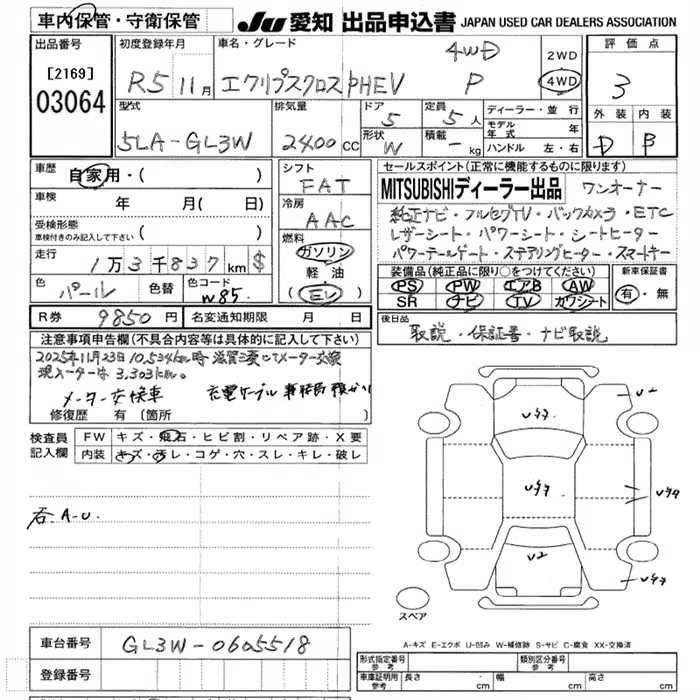 車内保管・守衛保管
JU 愛知 出品申込書 JAPAN USED CAR DEALERS ASSOCIATION
出品番号
[2169]
03064
初度登録年月
R5 11月
車名・グレード
エクリプスクロスPHEV
4WD
P
2WD
4WD
評価点
3
外装 内装
D B
型式
5LA-GL3W
排気量
2400 CC
ドア
5
定員
5 人
形状
W
積載
- kg
ディーラー・並行
モデル年式 年
ハンドル 左・右
車歴
自家用・( )
車検
年 月( 日)
受検形態
車検付きのみ記入して下さい ( )
走行
1万3千837km $
色
パール
色替
色コード
W85
シフト
FAT
冷房
AAC
燃料
ガソリン
軽油
(EV)
R券 9850円
名変通知期限 月 日
セールスポイント(正常に機能するものに限ります)
MITSUBISHIディーラー出品 ワンオーナー
純正ナビ・フルセグTV・バックカメラ・ETC
レザーシート・パワーシート・シートヒーター
パワーテールゲート・ステアリングヒーター・スマートキー
装備品(純正品に限り○をつけてください)
PS PW エアB AW
SR ナビ TV カワシート
新車保証書
有・無
後日品
取説・保証書・ナビ取説
注意事項申告欄(不具合内容等は具体的に記入して下さい)
2025年11月23日 10,534km時 滋賀三菱にてメーター交換
現メーターは 3,303km。
メーター交換車
充電ケーブル 事務局預かり
修復歴 有〔箇所 〕
検査員
記入欄
FW キズ・飛石・ヒビ割・リペア跡・X要
内装 キズ・汚レ・コゲ・穴・スレ・キレ・破レ
A-U
U2
スペア
A-キズ E-エクボ U-凹み W-補修跡 S-サビ C-腐食 XX-交換済
車台番号
GL3W-0605518
登録番号
形式指定番号
参考
類別区分番号
参考
車庫証明用
参考
長さ cm
幅 cm
高さ cm